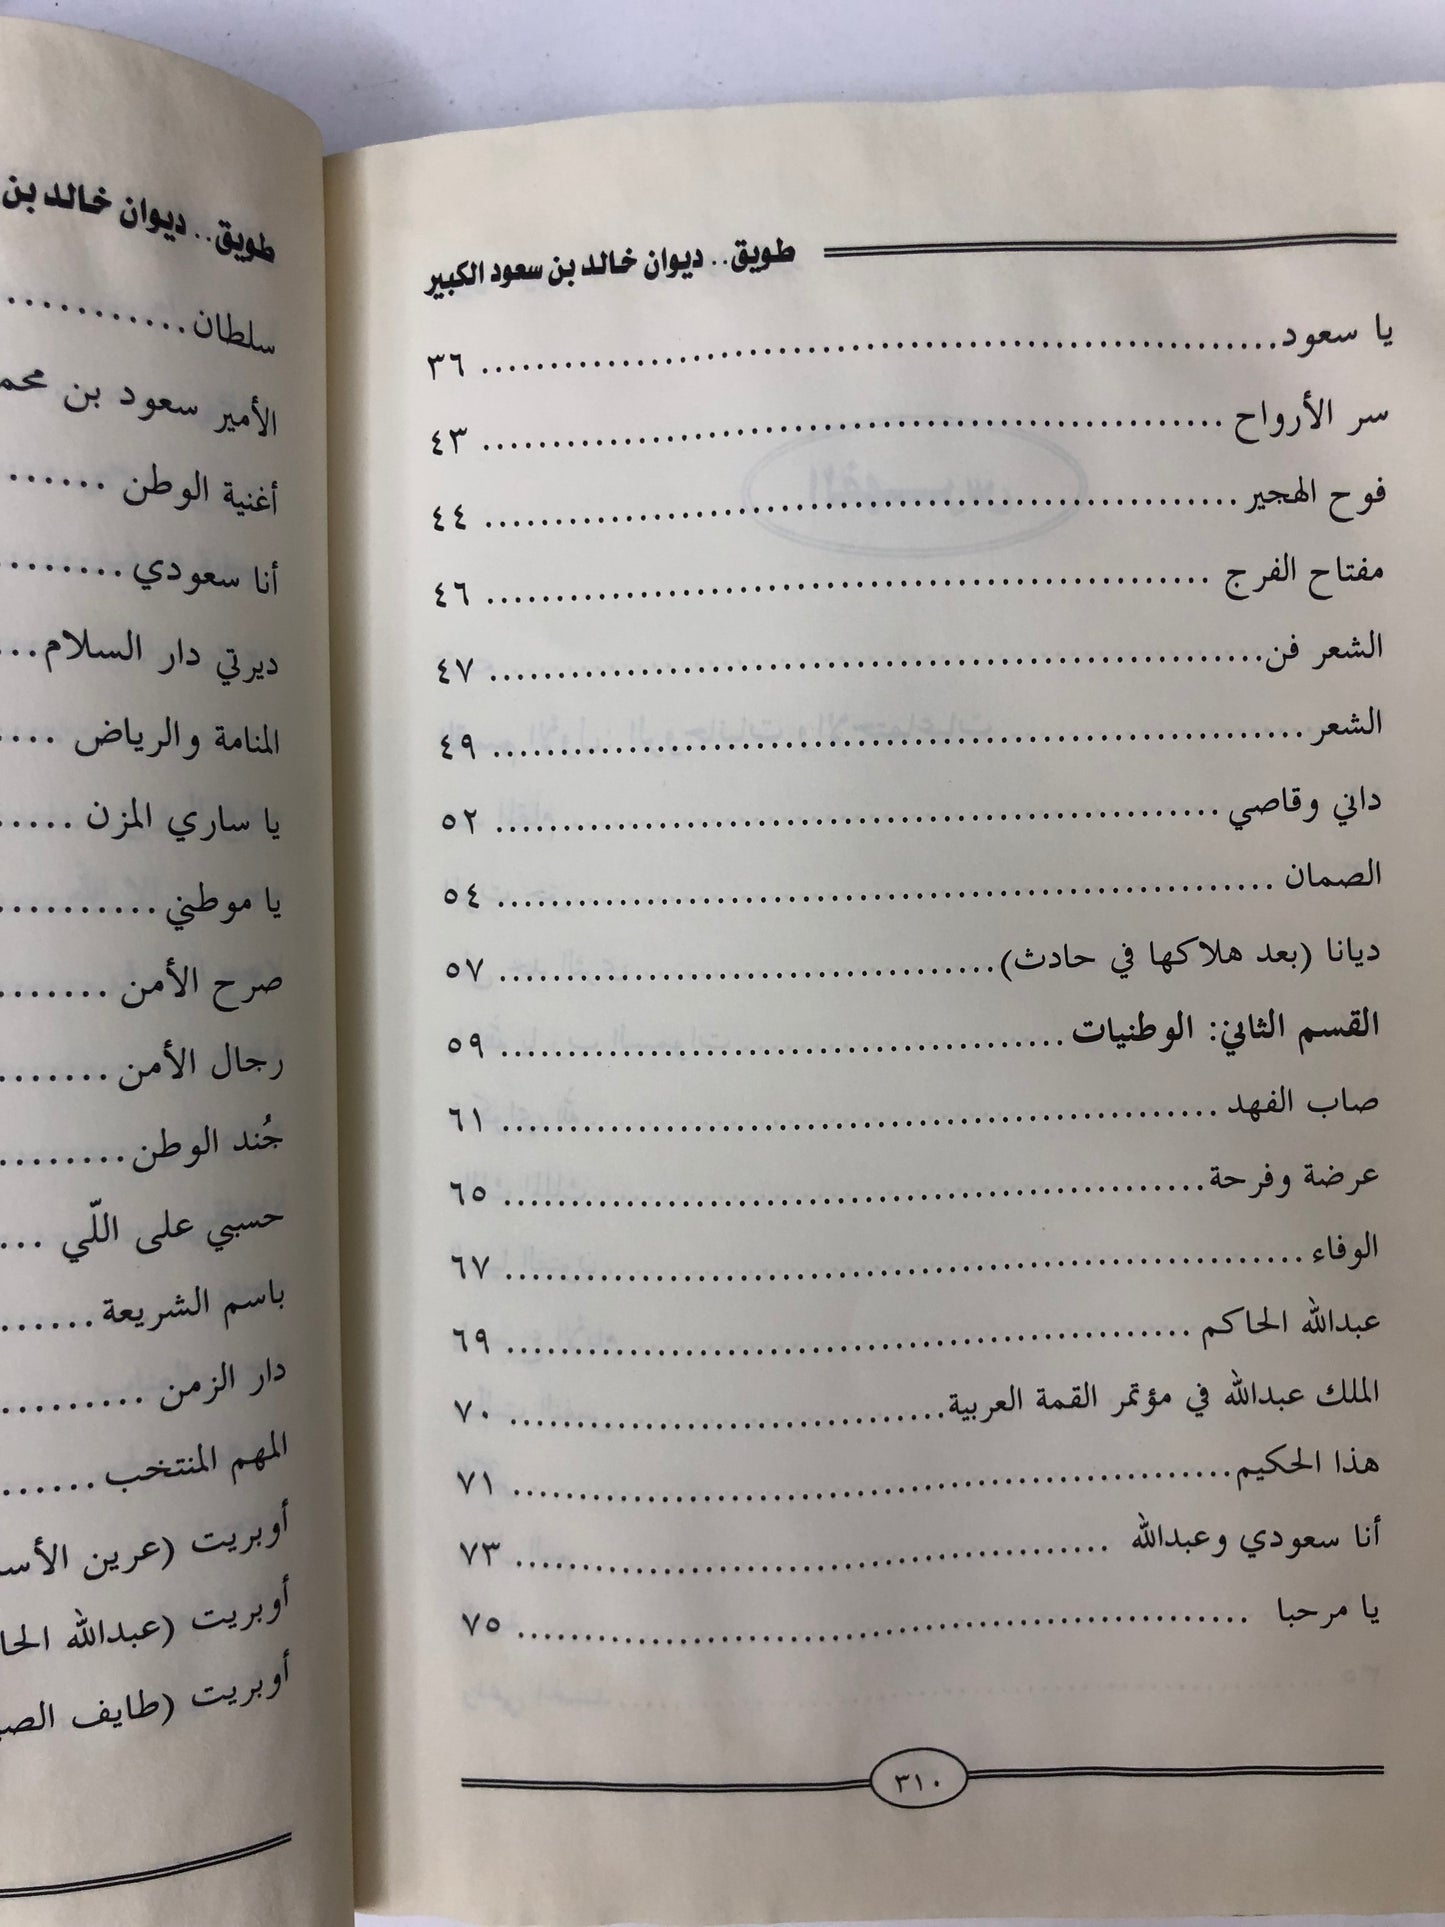 طويق.. ديوان خالد بن سعود الكبير
يا سعود ........ ٣٦
سر الأرواح ........ ٤٣
فوح الهجير ........ ٤٤
مفتاح الفرج ........ ٤٦
الشعر فن ........ ٤٧
الشعر ........ ٤٩
داني وقاصي ........ ٥٢
الصمان ........ ٥٤
ديانا (بعد هلاكها في حادث) ........ ٥٧
القسم الثاني: الوطنيات ........ ٥٩
صاب الفهد ........ ٦١
عرضة وفرحة ........ ٦٥
الوفاء ........ ٦٧
عبدالله الحاكم ........ ٦٩
الملك عبدالله في مؤتمر القمة العربية ........ ٧٠
هذا الحكيم ........ ٧١
أنا سعودي وعبدالله ........ ٧٣
يا مرحبا ........ ٧٥
٣١٠
طويق.. ديوان خالد بن
سلطان ........
الأمير سعود بن
أغنية الوطن ........
أنا سعودي ........
ديرتي دار السلام ........
المنامة والرياض ........
يا ساري المزن ........
يا موطني ........
صرح الأمن ........
رجال الأمن ........
جُند الوطن ........
حسبي على اللّي ........
باسم الشريعة ........
دار الزمن ........
المهم المنتخب ........
أوبريت (عرين
أوبريت (عبدالله
أوبريت (طايف